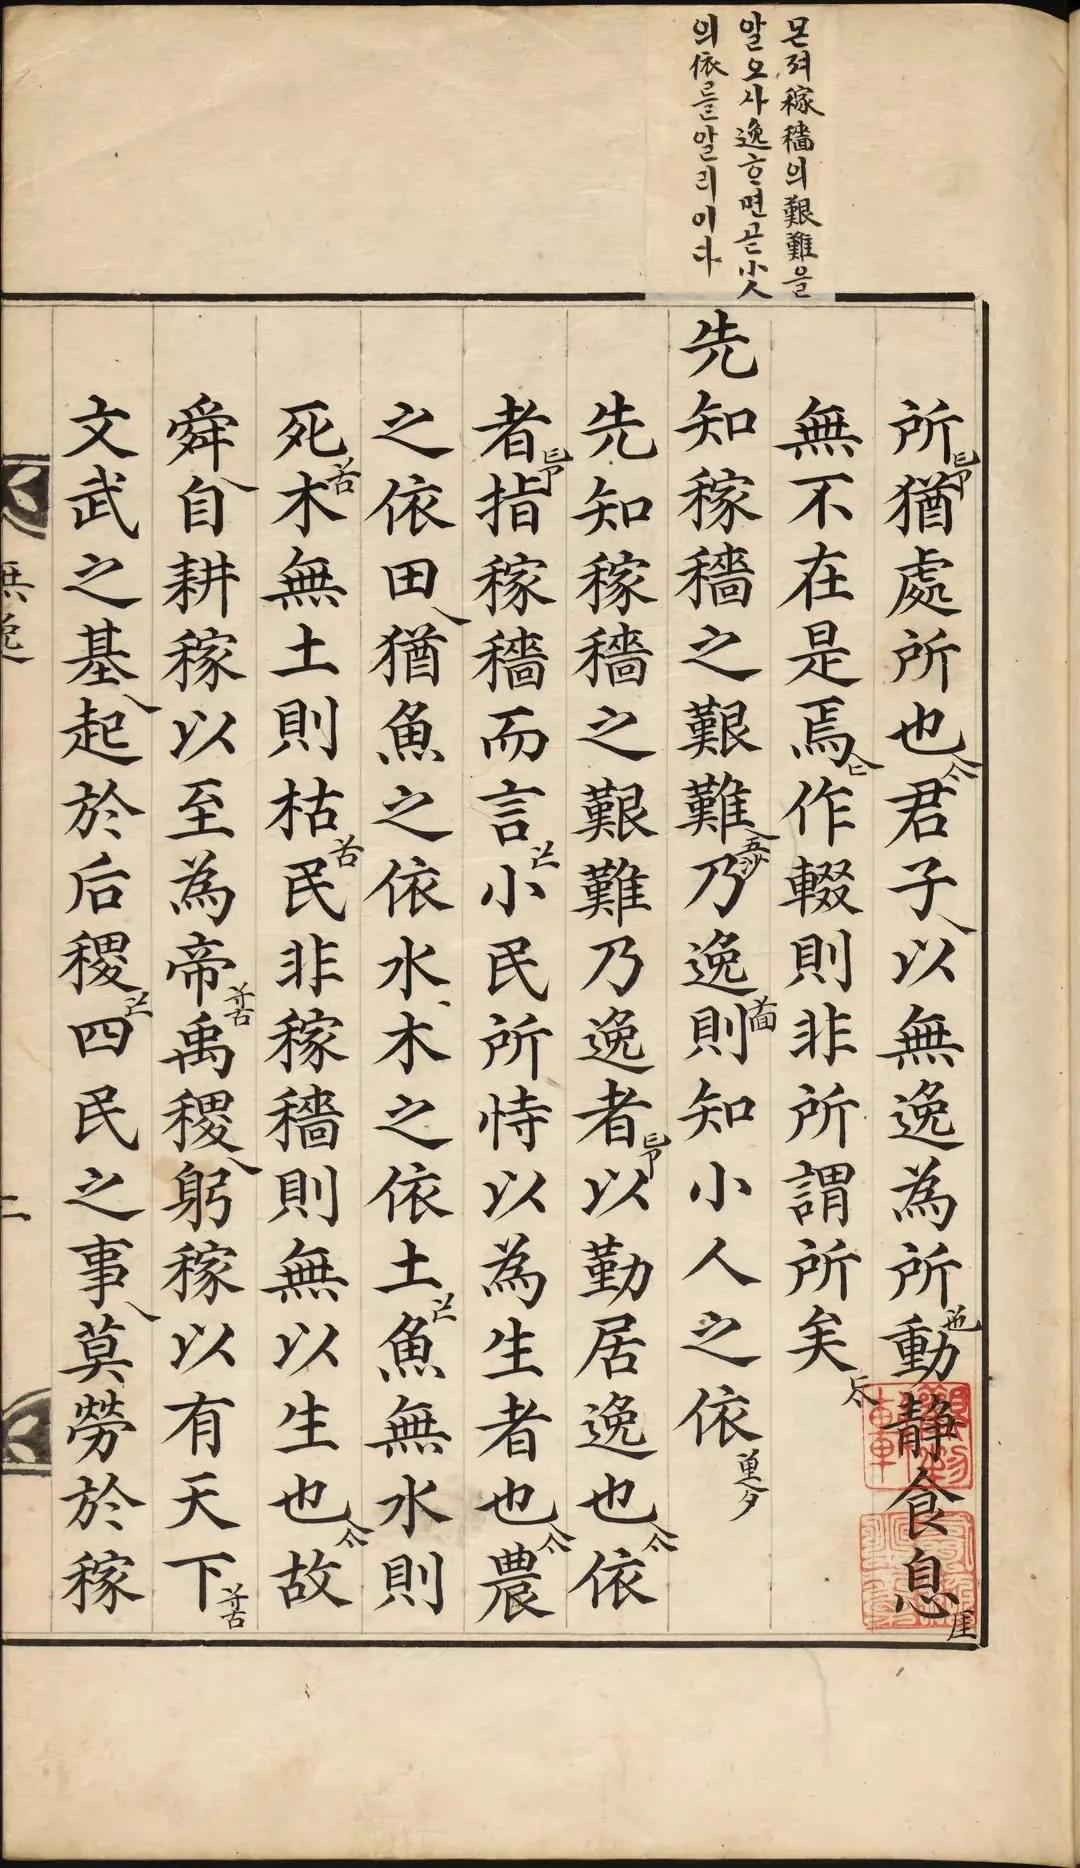 몬져稼穡의艱難을
알오사逸ᄒᆞ면곧小人
의依를알리이다
所猶處所也君子以無逸為所動靜食息
無不在是焉作輟則非所謂所矣
先知稼穡之艱難乃逸則知小人之依
先知稼穡之艱難乃逸者以勤居逸也依
者指稼穡而言小民所恃以為生者也農
之依田猶魚之依水木之依土魚無水則
死木無土則枯民非稼穡則無以生也故
舜自耕稼以至為帝禹稷躬稼以有天下
文武之基起於后稷四民之事莫勞於稼
無逸
二